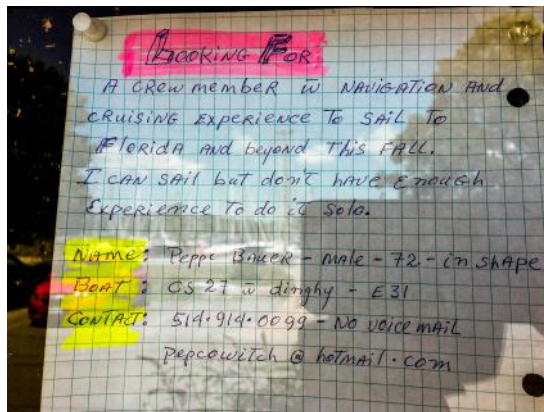 Looking For
A crew member w navigation and
cruising experience to sail to
Florida and beyond this fall.
I can sail but don't have enough
experience to do it solo.
Name: Peppe Baker - male - 72 - in shape
Boat: CS 27 w dinghy - E31
Contact: 514.914.0099 - No voice mail
pepcowitch @ hotmail.com